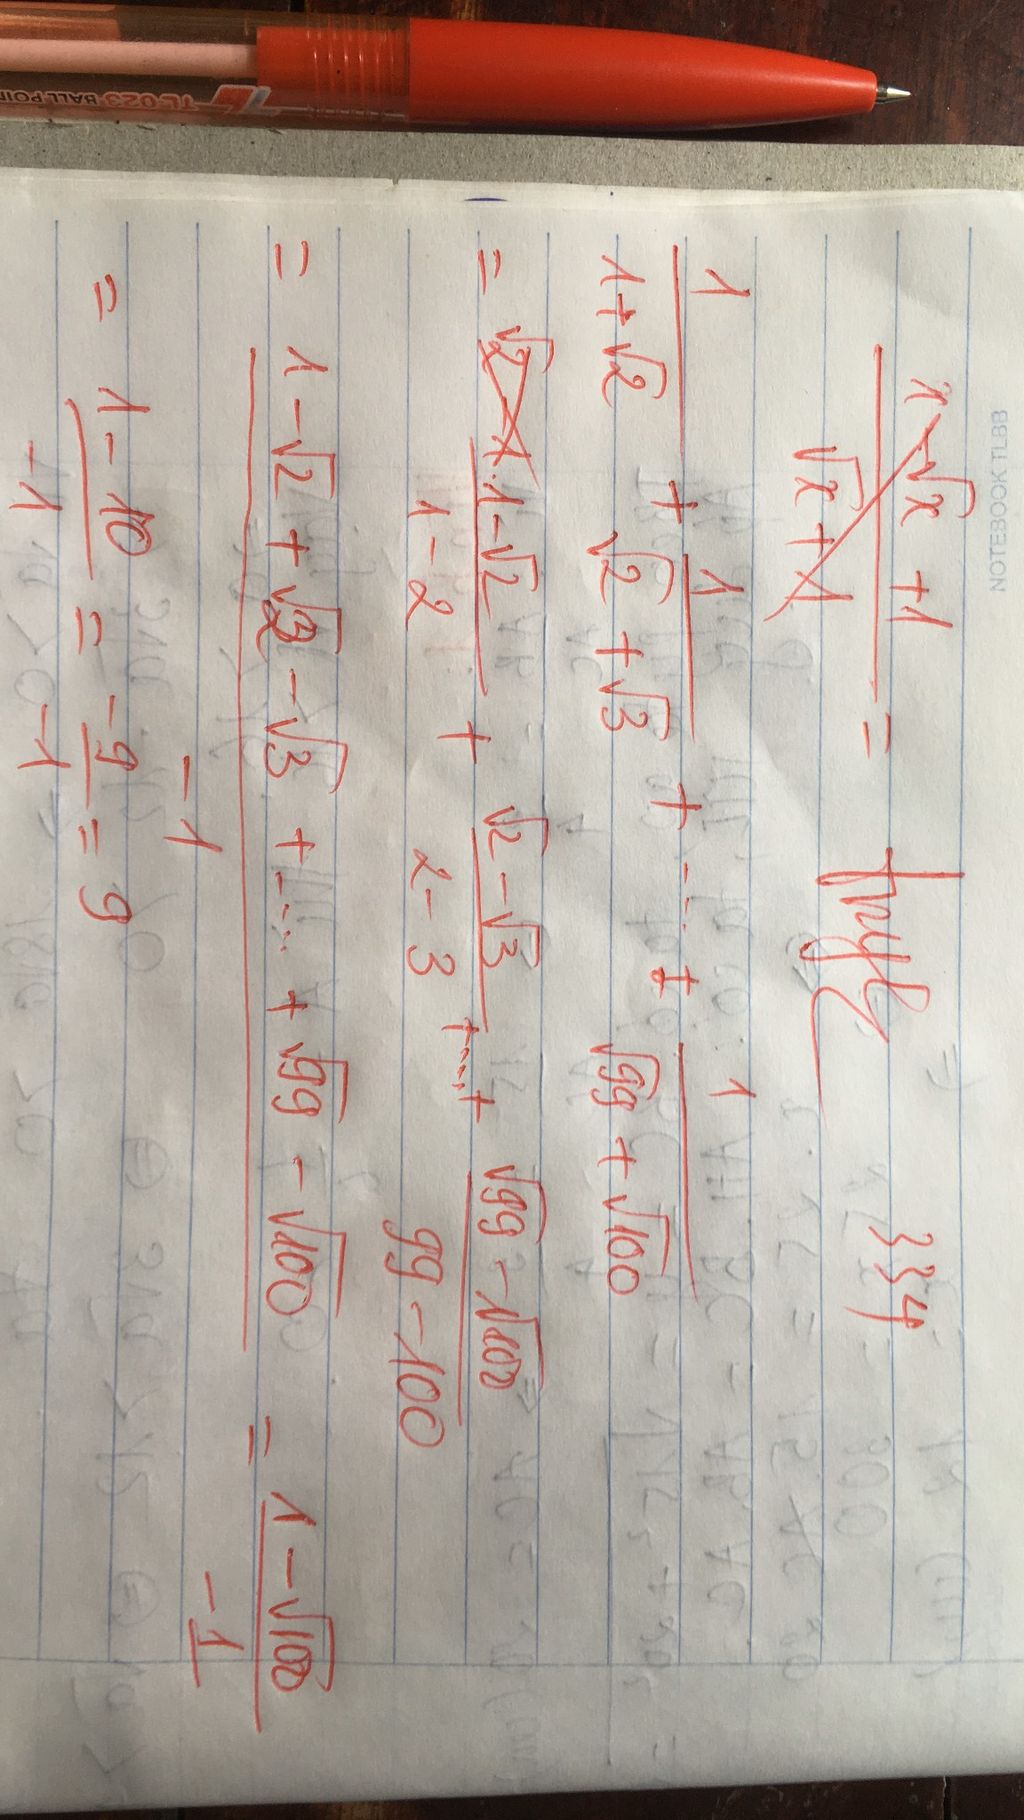 TL 023 BALL POIN
NOTEBOOK TLBB
x - √x + 1 / √x + 1 =
334
1 / 1 + √2 + 1 / √2 + √3 + ... + 1 / √99 + √100
= 1 - √2 / 1 - 2 + √2 - √3 / 2 - 3 + ... + √99 - √100 / 99 - 100
= 1 - √2 + √2 - √3 + ... + √99 - √100 / -1 = 1 - √100 / -1
= 1 - 10 / -1 = -9 / -1 = 9